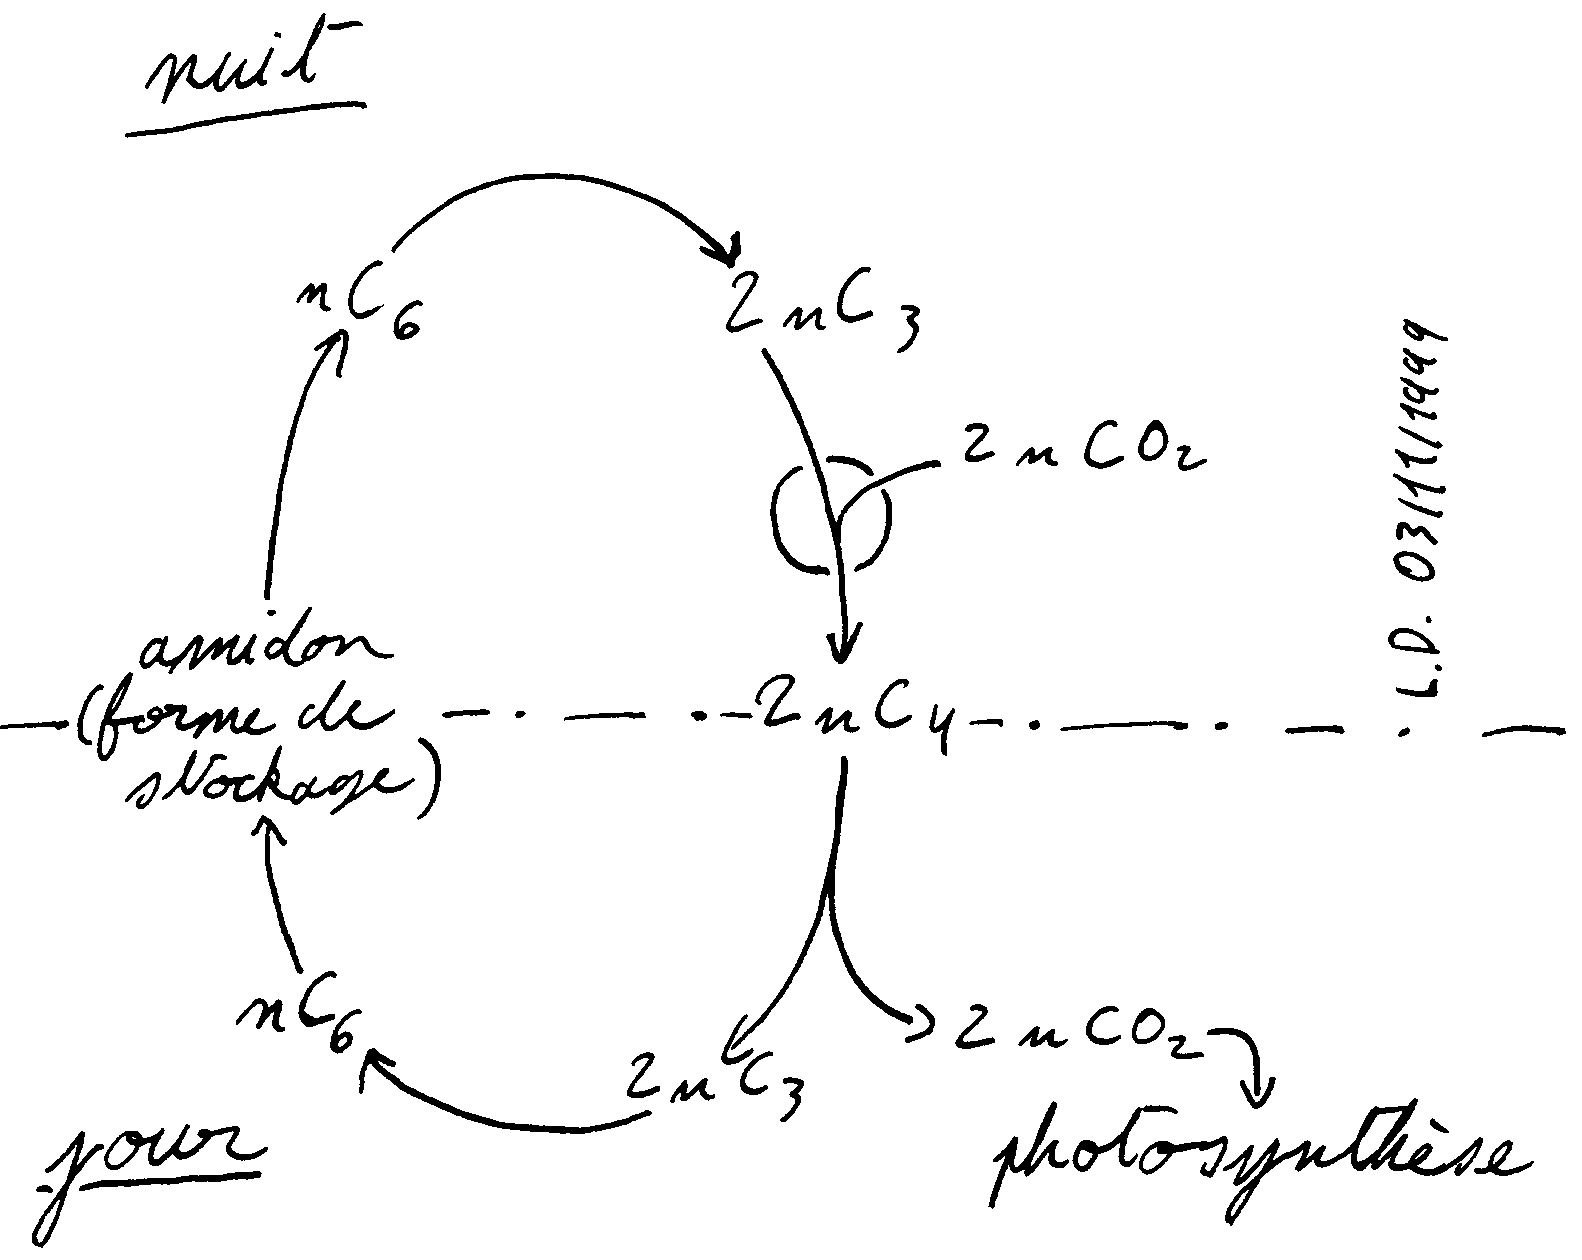 nuit
nC6
2nC3
2nCO2
L.D. 03/11/1999
amidon
(forme de
stockage)
2nC4
nC6
2nC3
2nCO2
jour
photosynthèse